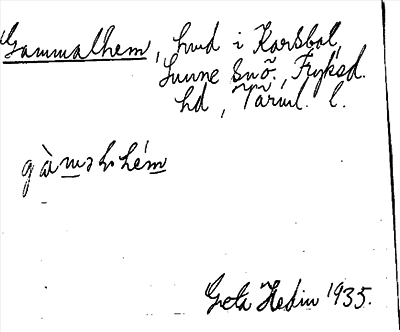 Gammalhem, hmd i Karsbol,
Sunne Snõ., Fryksd.
hd, Värml. l.
gàməhém
Greta Hedin 1935.